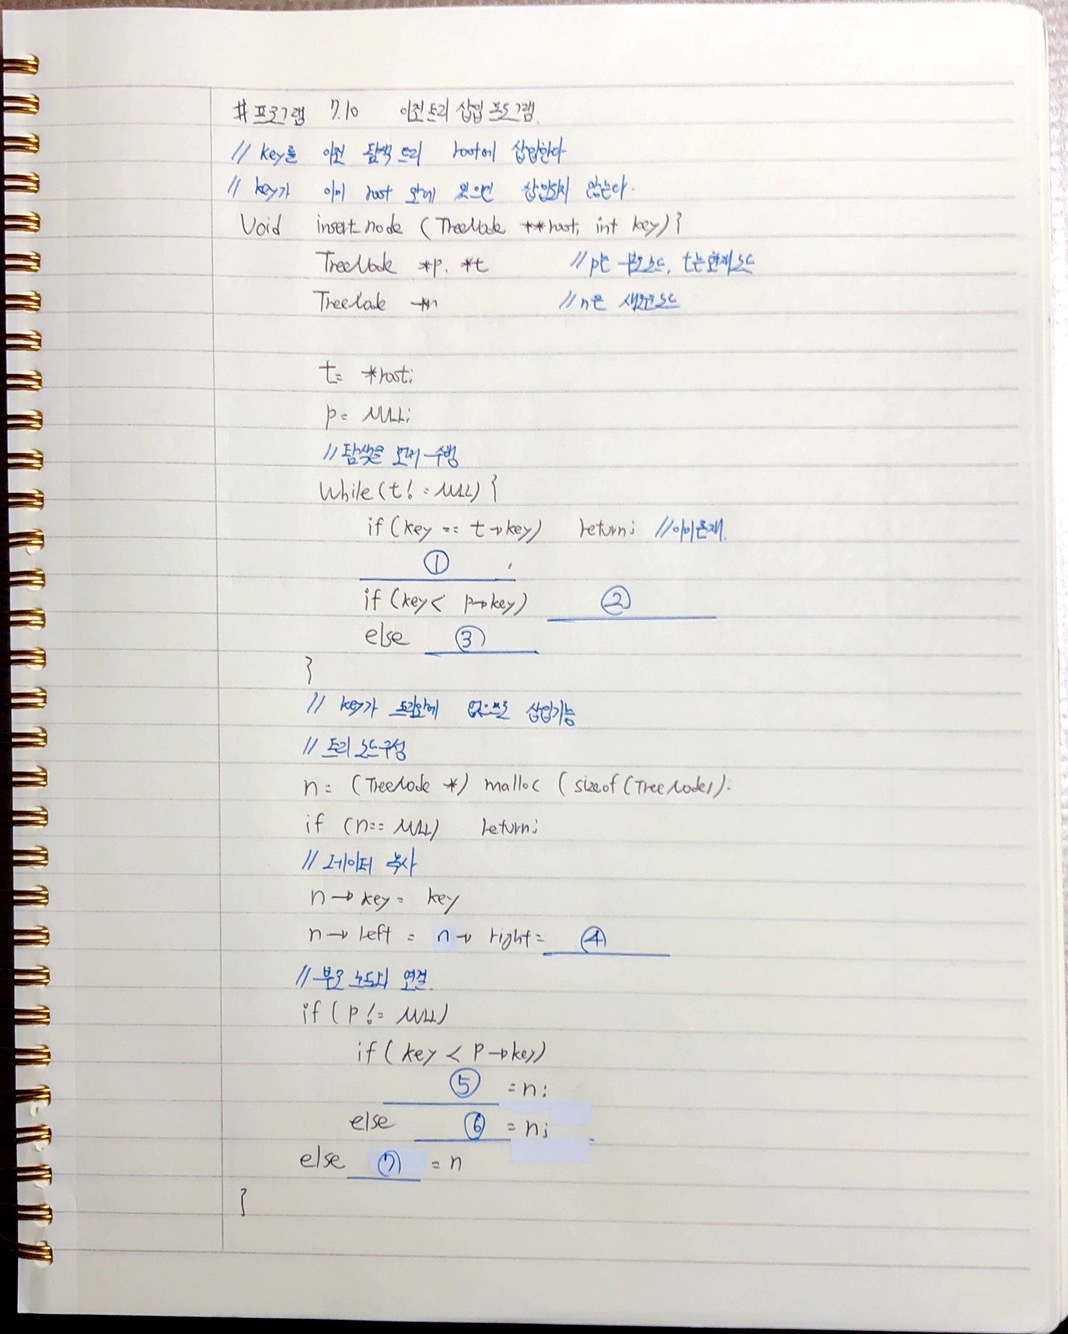 #프로그램 7.10 이진트리 삽입 프로그램.
// key를 이진 탐색 트리 root에 삽입한다
// key가 이미 root 안에 있으면 삽입되지 않는다.
Void insert_node (TreeNode **root, int key) {
TreeNode *p, *t //p는 부모노드, t는현재노드
TreeNode *n //n은 새로운노드
t= *root;
p= NULL;
//탐색을 먼저 수행
while(t != NULL) {
if(key == t→key) return; //이미존재.
①
if (key< p→key) ②
else ③
}
// key가 트리안에 없으므로 삽입가능
// 트리 노드구성
n= (TreeNode *) malloc (sizeof(TreeNode));
if (n== NULL) return;
// 데이터 복사
n→key= key
n→left = n→right= ④
//부모 노드와 연결.
if(p != NULL)
if(key < p→key)
⑤ =n;
else ⑥ = n;
else ⑦ = n
}